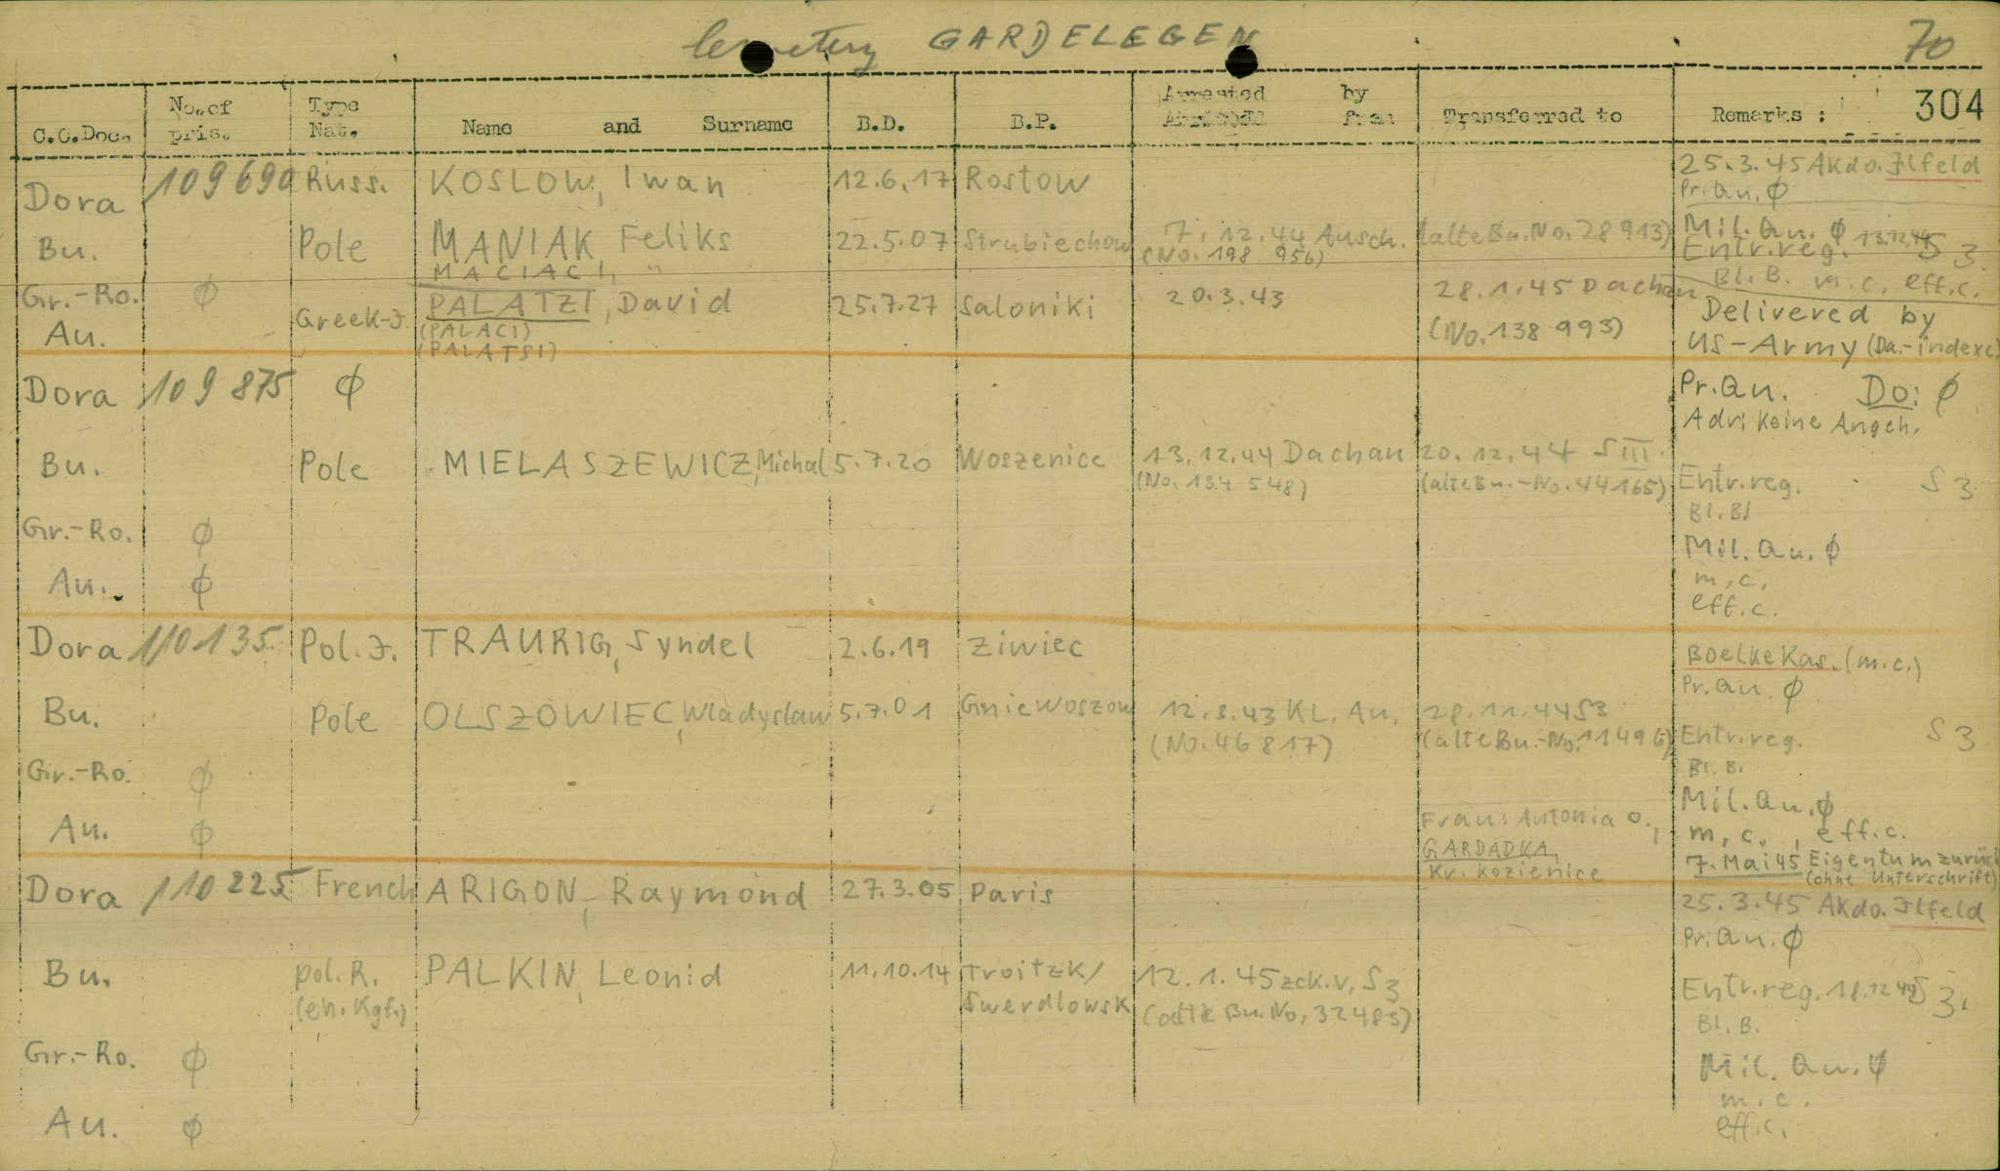 cemetery GARDELEGEN 70
C.C.Doc. No. of pris. Type Nat. Name and Surname B.D. B.P. Arrested by from Transferred to Remarks : 304
Dora 109690 Russ. KOSLOW, Iwan 12.6.17 Rostow 25.3.45 Akdo. Ilfeld
Pr. Qu. ϕ
Bu. Pole MANIAK Feliks 22.5.07 Strubiechow 7.12.44 Ausch. (alte Bu. No. 28913) Mil. Qu. ϕ 13.12.44
MACIACI, " (No. 198 956) Entr. reg. S 3
Bl. B. m.c. eff.c.
Gr.-Ro. ϕ
Au. Greek-J. PALATZI, David 25.7.27 Saloniki 20.3.43 28.1.45 Dachau Delivered by
(PALACI) (No. 138 993) US-Army (Da.-indexc)
(PALATSI)
Dora 109 875 ϕ Pr. Qu. Do: ϕ
Adr: Keine Angeh.
Bu. Pole MIELASZEWICZ, Michal 5.7.20 Woszenice 13.12.44 Dachau 20.12.44 S III
(No. 134 548) (alte Bu.-No. 44165) Entr. reg. S 3
Bl. Bl
Gr.-Ro. ϕ Mil. Qu. ϕ
Au. ϕ m.c.
eff.c.
Dora 110135 Pol. J. TRAURIG, Syndel 2.6.19 Ziwiec Boelke Kas. (m.c.)
Pr. Qu. ϕ
Bu. Pole OLSZOWIEC, Wladyslaw 5.7.01 Gniewoszow 12.3.43 KL. Au. 28.11.44 S3
(No. 46 817) (alte Bu.-No. 11496) Entr. reg. S 3
Bl. B.
Gr.-Ro. ϕ Mil. Qu. ϕ
Au. ϕ Frau: Antonia O., m.c., eff.c.
GARDADKA, 7. Mai 45 Eigentum zurück
Kr. Kozienice (ohne Unterschrift)
Dora 110 225 French ARIGON, Raymond 27.3.05 Paris 25.3.45 Akdo. Ilfeld
Pr. Qu. ϕ
Bu. pol. R. PALKIN, Leonid 11.10.14 Troitzk/ 12.1.45 zck. v. S3
(eh. Kgf.) Swerdlowsk (alte Bu. No. 32485) Entr. reg. 18.12.44 S 3.
Bl. B.
Gr.-Ro. ϕ Mil. Qu. ϕ
m.c.
Au. ϕ eff.c.